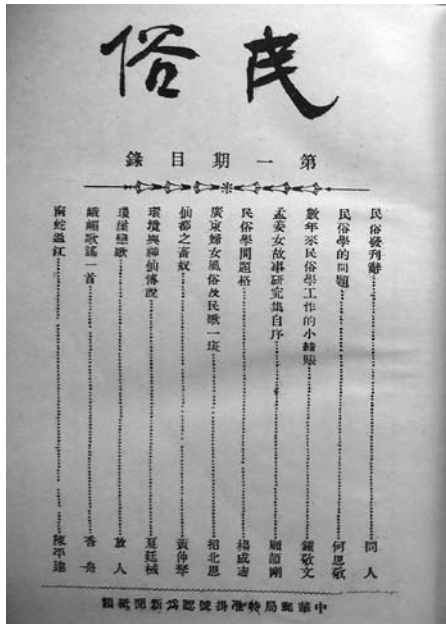 民俗
第一期目錄
民俗發刊辭……同人
民俗學的問題……何思敬
數年來民俗學工作的小結賬……鍾敬文
孟姜女故事研究集自序……顧頡剛
民俗學問題格……楊成志
廣東婦女風俗及民歌一斑……招北恩
仙都之畜奴……黃仲琴
環境與神仙傳說……夏廷棫
瓊崖戀歌……放人
峨嵋歌謠一首……香舟
南蛇過江……陳平
中華郵局特准掛號認爲新聞紙類